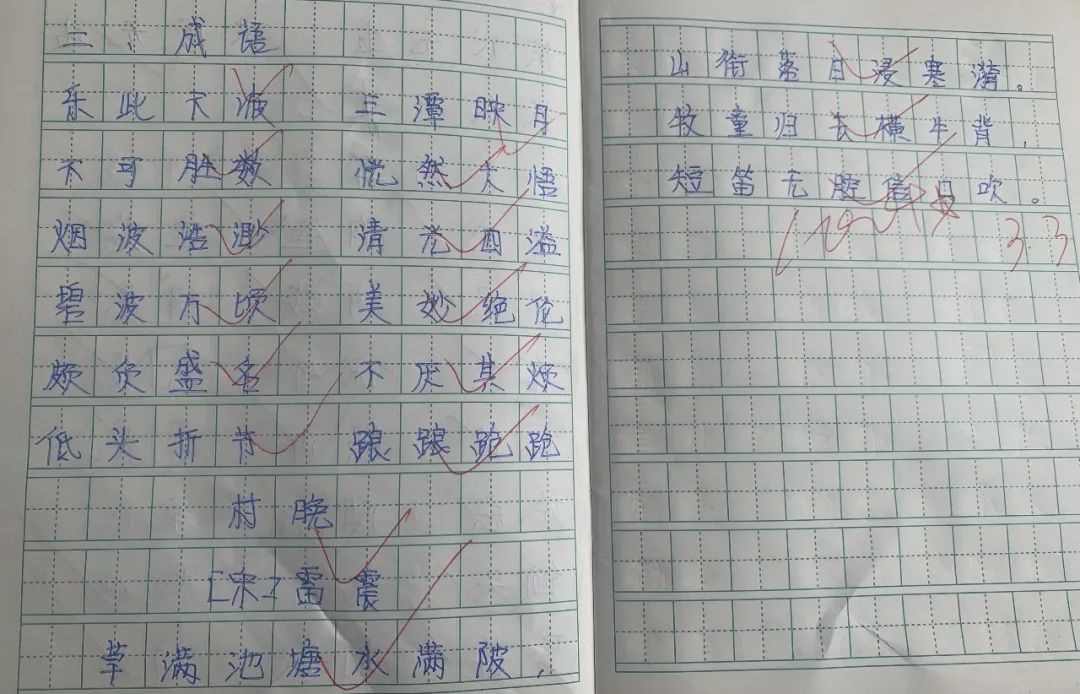 三、成语
乐此不疲 三潭映月
不可胜数 恍然大悟
烟波浩渺 清光四溢
碧波万顷 美妙绝伦
颇负盛名 不厌其烦
低头折节 踉踉跄跄
村晚
[宋]雷震
草满池塘水满陂,
山衔落日浸寒漪。
牧童归去横牛背,
短笛无腔信口吹。
33